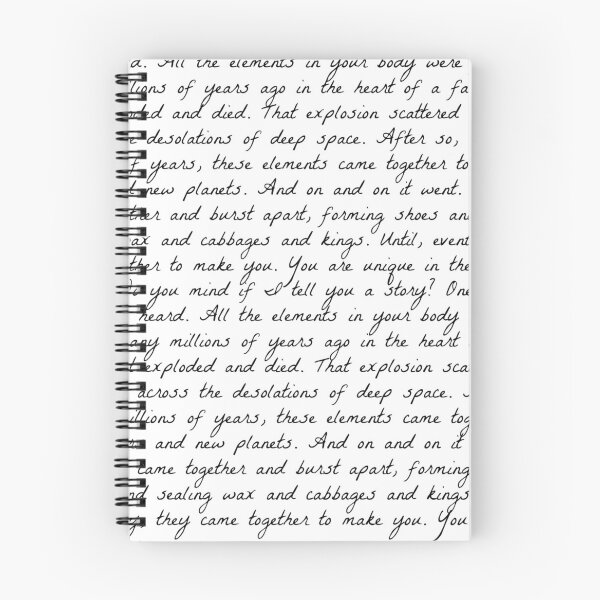 d. All the elements in your body were
lions of years ago in the heart of a fa
ded and died. That explosion scattered
e desolations of deep space. After so,
f years, these elements came together to
new planets. And on and on it went.
ther and burst apart, forming shoes an
ax and cabbages and kings. Until, event
ther to make you. You are unique in the
o you mind if I tell you a story? One
heard. All the elements in your body
any millions of years ago in the heart
t exploded and died. That explosion sca
across the desolations of deep space.
illions of years, these elements came tog
and new planets. And on and on it
came together and burst apart, forming
nd sealing wax and cabbages and kings
y, they came together to make you. You